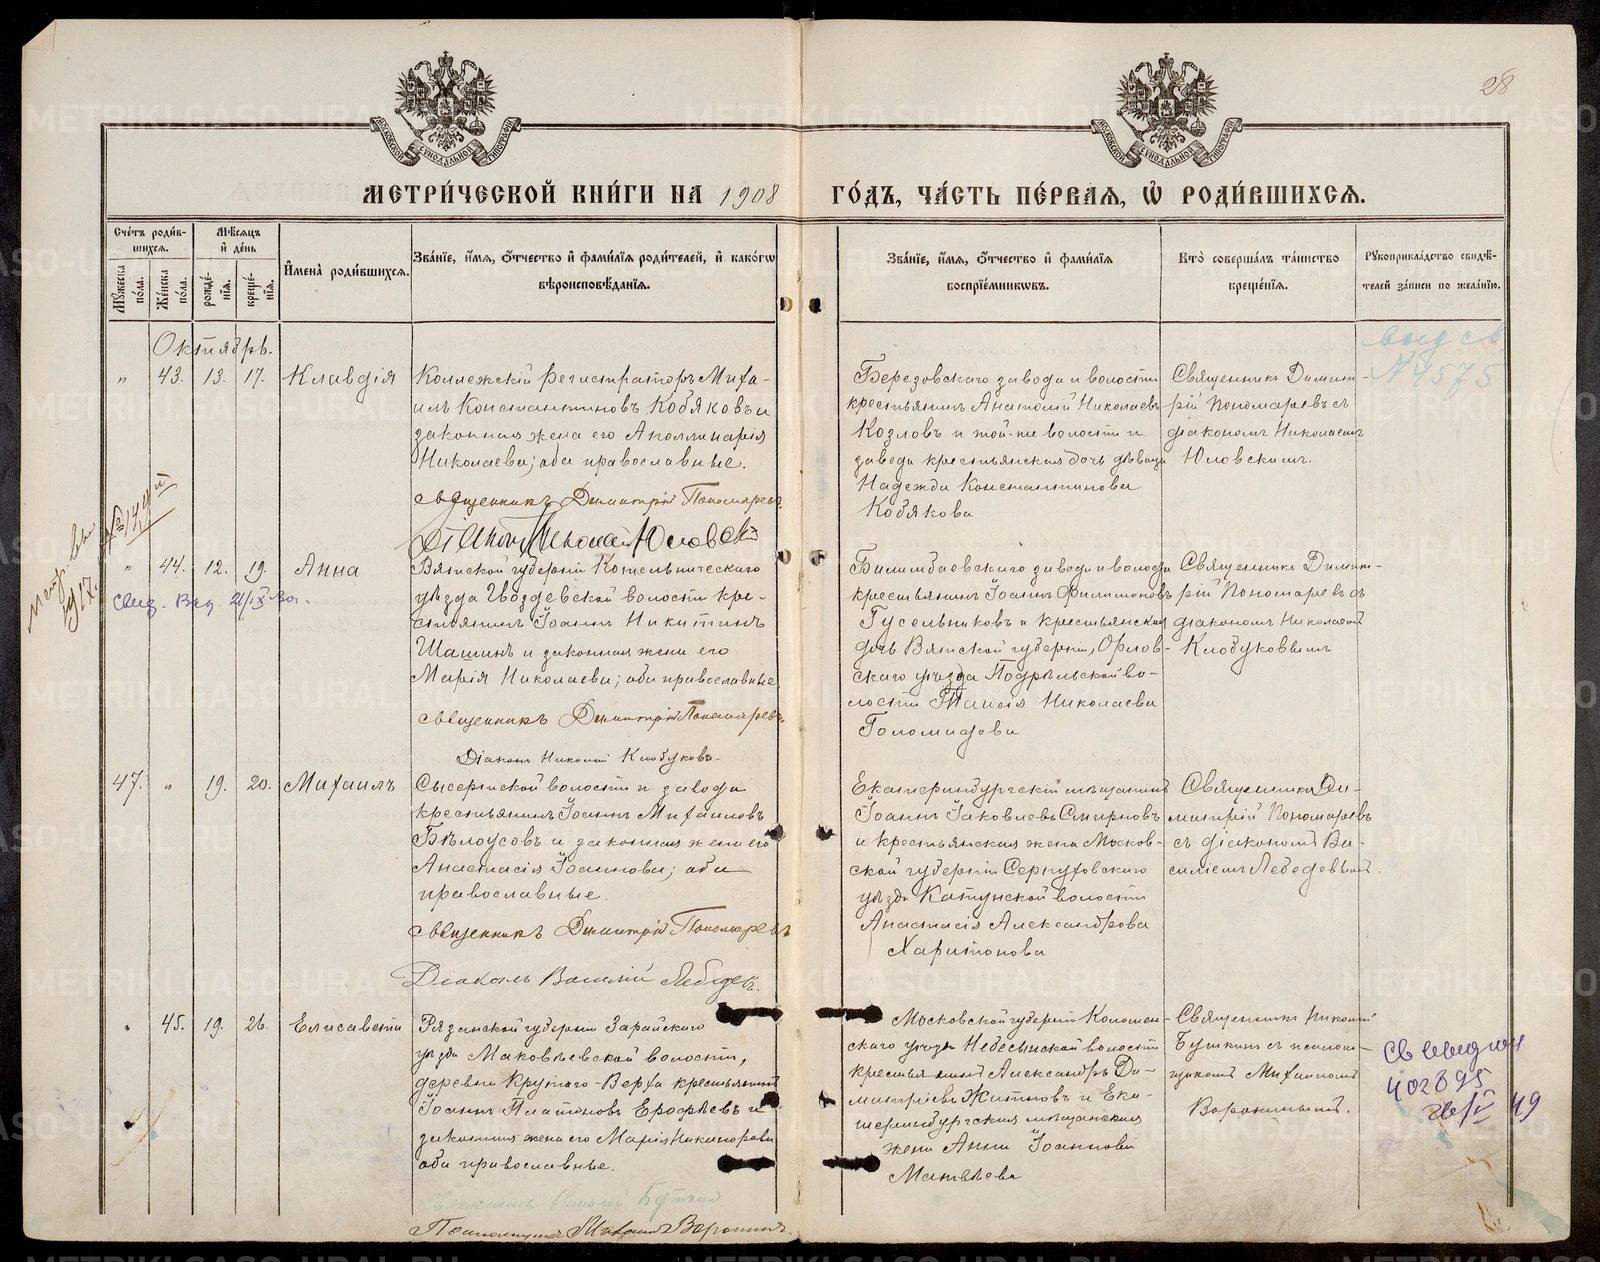 28
МЕТРИ́ЧЕСКОЙ КНИ́ГИ НА 1908 ГО́ДЪ, ЧА́СТЬ ПЕ́РВАѦ, Ѡ҆ РОДИ́ВШИХСѦ.
Сче́тъ роди́в-
шихсѧ.
Мꙋ́жеска по́ла.
Же́нска по́ла.
Мѣ́сѧцъ
и҆ де́нь
рожде́-
нїѧ.
креще́-
нїѧ.
И҆мена̀ роди́вшихсѧ.
Зва́нїе, и҆́мѧ, ѻ҆́тчество и҆ фами́лїѧ роди́телей, и҆ како́гѡ
вѣроисповѣ́данїѧ.
Зва́нїе, и҆́мѧ, ѻ҆́тчество и҆ фами́лїѧ
воспрїе́мникѡвъ.
Кто̀ соверша́лъ та́инство
креще́нїѧ.
Рꙋкоприкла́дство свидѣ́-
телей за́писи по жела́нїю.
Октябрь.
" 43. 13. 17. Клавдія
Коллежскій регистраторъ Миха-
илъ Константиновъ Кобяковъ и
законная жена его Аполлинарія
Николаева; оба православные.
священникъ Димитрій Пономаревъ
Діаконъ Николай Юловскій
Березовскаго завода и волости
крестьянинъ Анатолій Николаевъ
Козловъ и той-же волости и
завода крестьянская дочь девица
Надежда Константинова
Кобякова
Священникъ Димит-
рій Пономаревъ съ
діакономъ Николаемъ
Юловскимъ.
выд св.
N 4575
" 44. 12. 19. Анна
Вятской губерніи Котельническаго
уѣзда Гвоздевской волости кре-
стьянинъ Іоаннъ Никитинъ
Шашинъ и законная жена его
Марія Николаева; оба православные
священникъ Димитрій Пономаревъ
Діаконъ Николай Клобуковъ.
Билимбаевскаго завода и волости
крестьянинъ Іоаннъ Филимоновъ
Гусельниковъ и крестьянская
дочь Вятской губерніи, Орлов-
скаго уѣзда Подрѣльской во-
лости Таисія Николаева
Голомидова
Священникъ Димит-
рій Пономаревъ съ
діакономъ Николаемъ
Клобуковымъ
47. " 19. 20. Михаилъ
Сысертской волости и завода
крестьянинъ Іоаннъ Михаиловъ
Бѣлоусовъ и законная жена его
Анастасія Іоаннова; оба
православные.
священникъ Димитрій Пономаревъ
Діаконъ Василій Лебедевъ.
Екатеринбургскій мѣщанинъ
Іоаннъ Іаковлевъ Смирновъ
и крестьянская жена Москов-
ской губерніи Серпуховскаго
уѣзда Хатунской волости
Анастасія Александрова
Харитонова
Священникъ Ди-
митрій Пономаревъ
съ діакономъ Ва-
силіемъ Лебедевымъ.
" 45. 19. 26. Елисавета
Рязанской губерніи Зарайскаго
уѣзда Маковѣевской волости,
деревни Крутаго-Верха крестьянинъ
Іоаннъ Платоновъ Ерофѣевъ и
законная жена его Марія Никанорова
оба православные.
Псаломщикъ Михаилъ Воронинъ
Московской губерніи Коломен-
скаго уѣзда
крестьянинъ Александръ Ди-
митріевъ Житновъ и Ека-
теринбургская мѣщанская
жена Анна Іоаннова
Матвѣева
Священникъ Николай
Буткинъ съ псалом-
щикомъ Михаиломъ
Воронинымъ.
402695
49